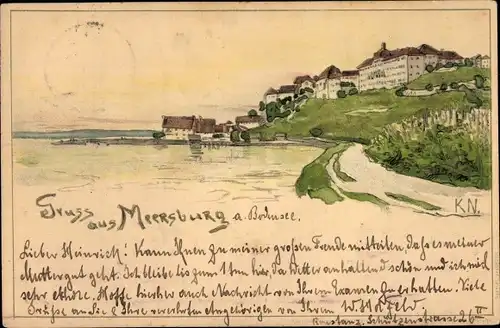 Gruss aus Meersburg a. Bodensee.
K.N.
Lieber Heinrich! Kann Ihnen zu meiner großen Freude mitteilen, daß es meiner
Mutter gut geht. Ich bleibe bis zum 1ten hier, da Wetter anhaltend schön und ich mich
sehr erhole. Hoffe hierher auch Nachricht von Ihrem Examen zu erhalten. Viele
Grüße an Sie & Ihre verehrten Angehörigen von Ihrem
Konstanz, Schützenstrasse 26 II